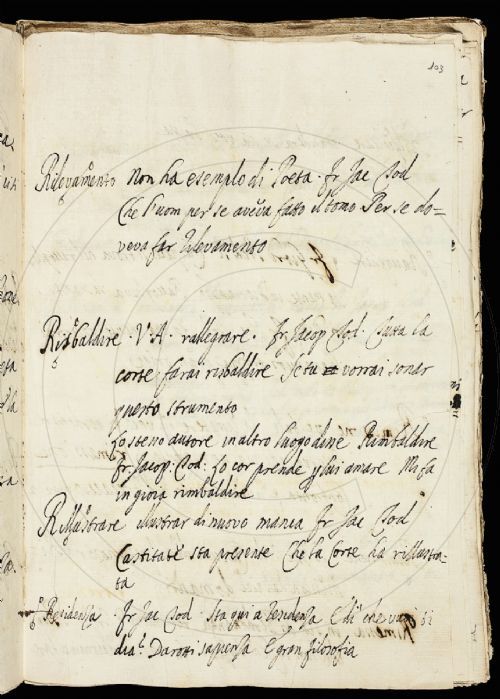 103
Rilevamento Non ha esempio di Poeta. Fr Jac Tod
Che l'uom per se aveva fatto il tomo Per se do=
veva far rilevamento
Risbaldire V. A. rallegrare. Fr Jacop Tod. Tutta la
corte farai risbaldire Se tu vorrai sonar
questo strumento
Lo stesso autore in altro luogo disse Rimbaldire
Fr. Jacop: Tod: Lo cor prende p lui amare Mi fa
in gioia rimbaldire
Rillustrare illustrar di nuovo manca Fr Jac Tod
Castitate sta presente Che la Corte ha rillustra-
ta
Residenza. Fr Jac Tod. Sta qui a residenza E di che
Darotti sapienza E gran filosofia